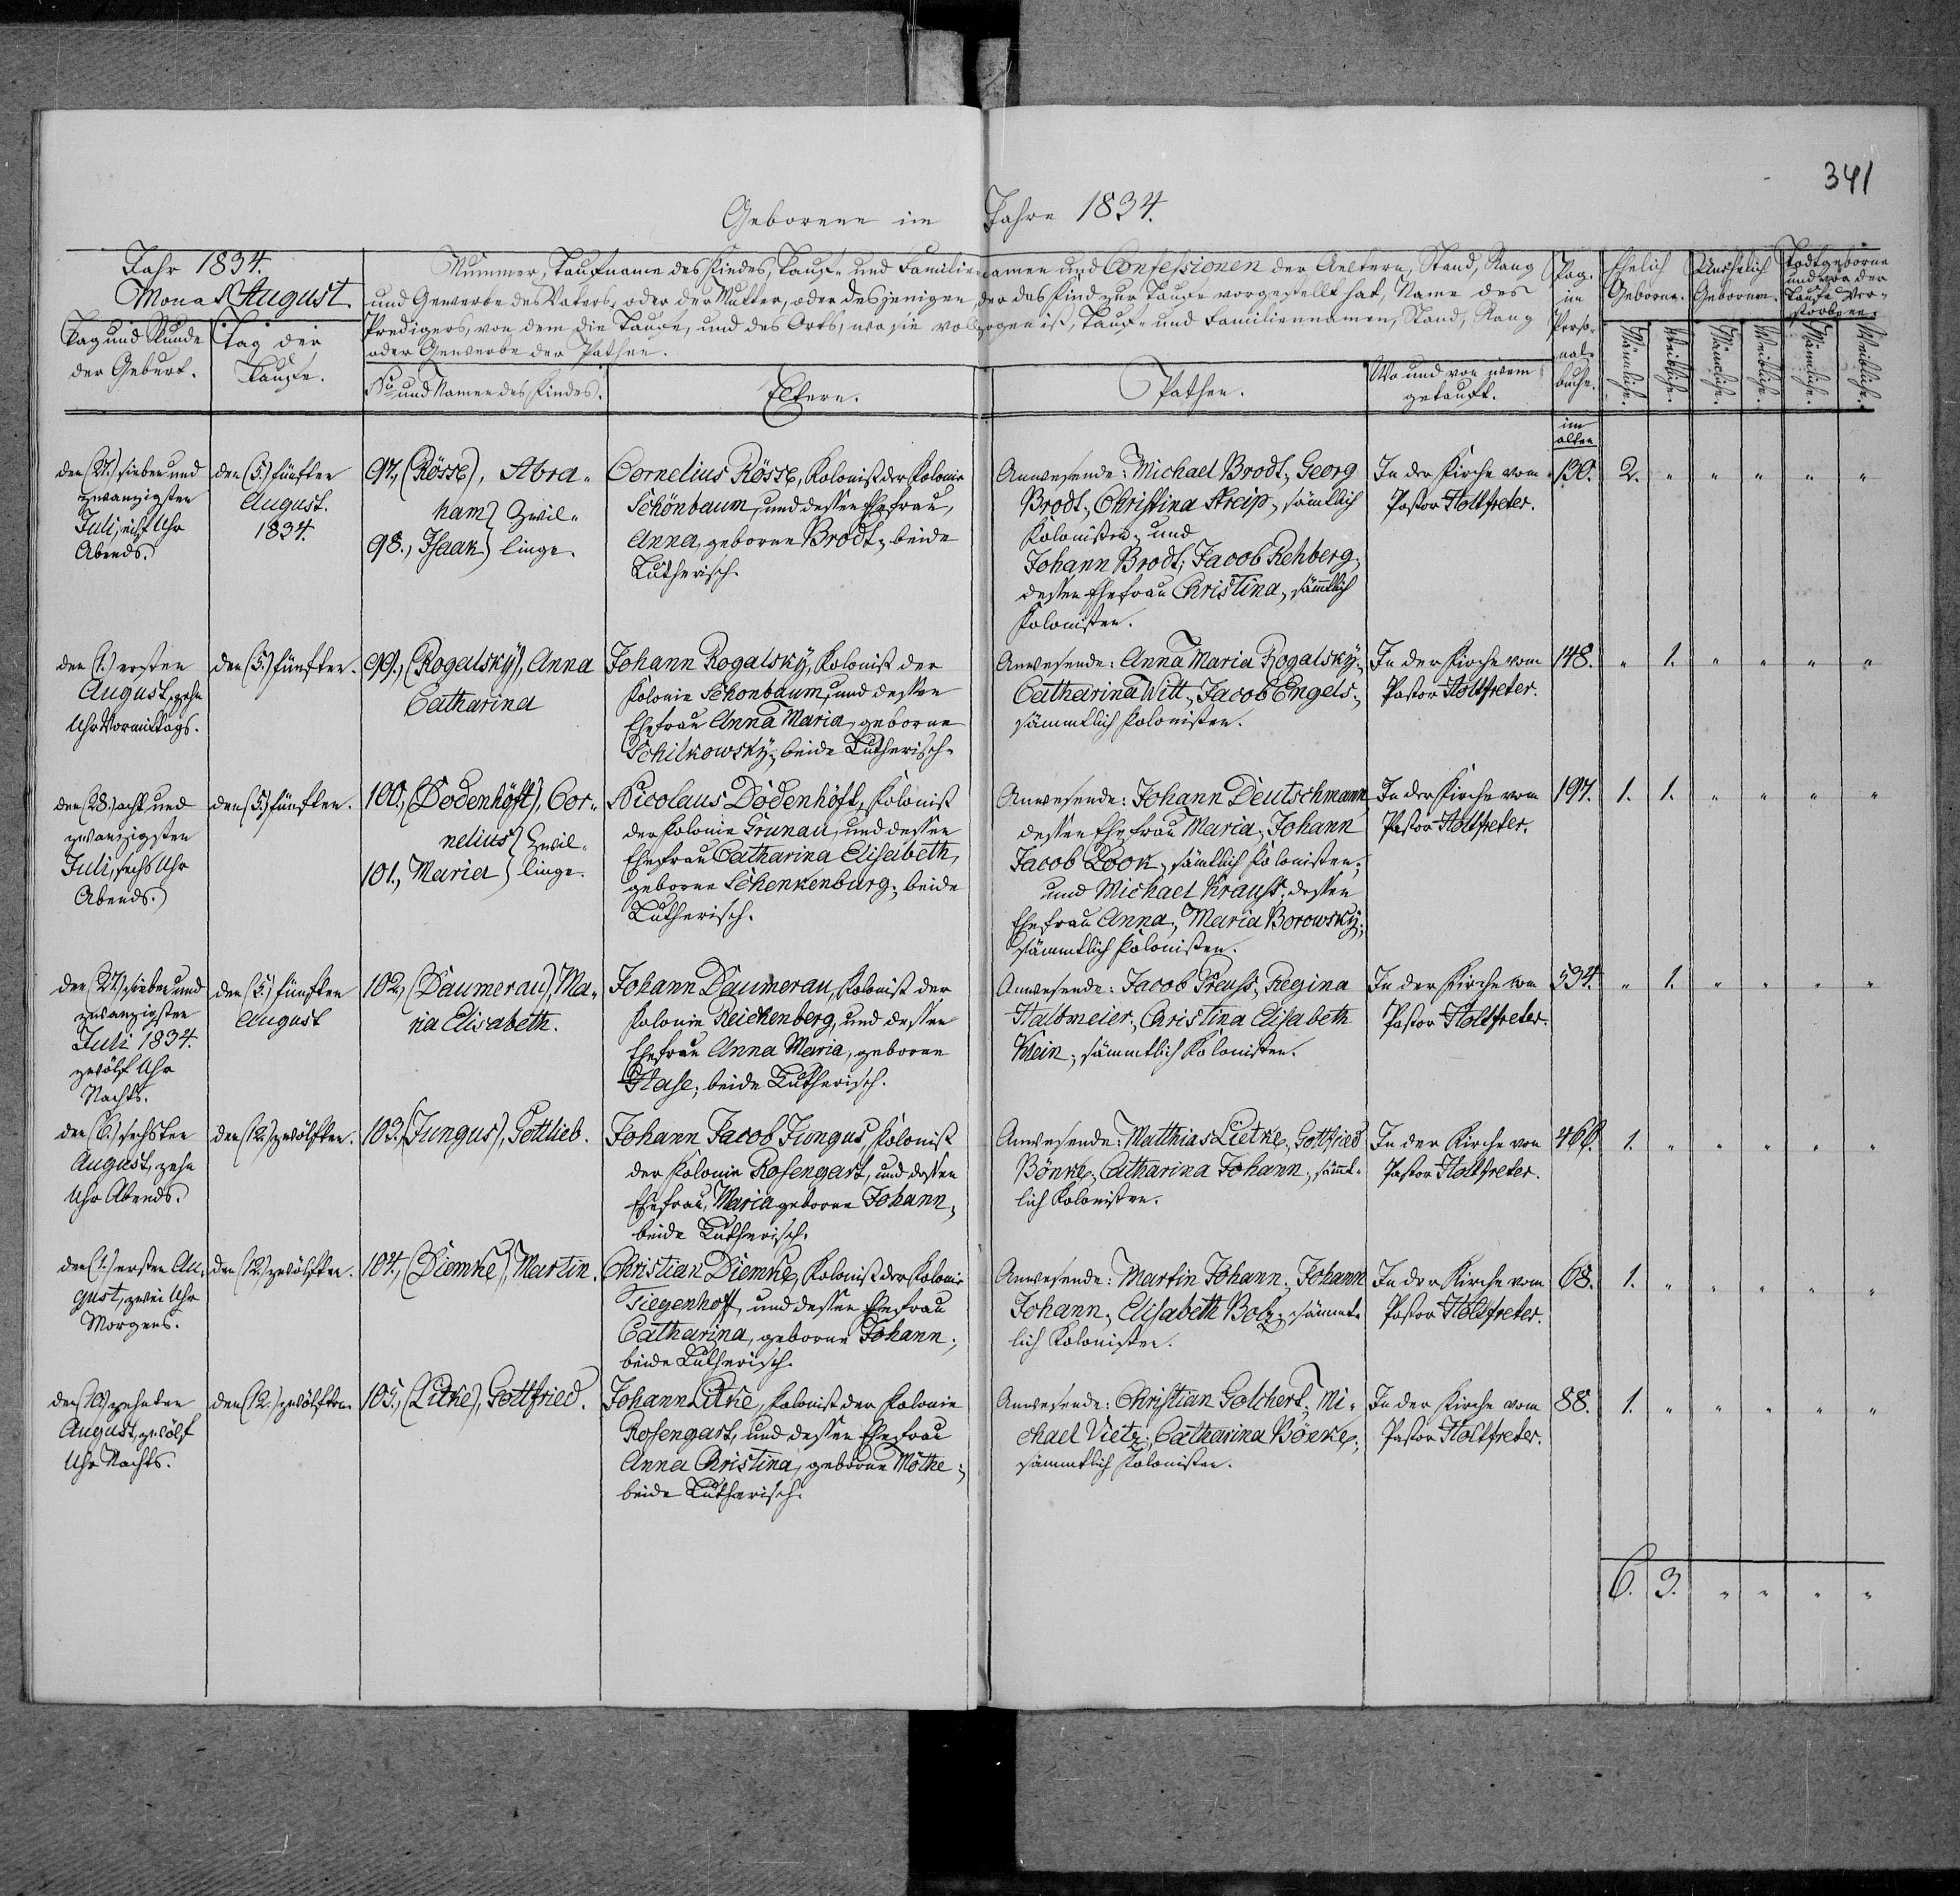 341
Geborene im Jahre 1834.
Jahr 1834.
Monat August.
Tag und Stunde
der Geburt.
Tag der
Taufe.
Nummer, Taufname des Kindes, Tauf- und Familiennamen und Confessionen der Aeltern, Stand, Rang
und Gewerbe des Vaters, oder der Mutter, oder desjenigen, der das Kind zur Taufe vorgestellt hat, Name des
Predigers, von dem die Taufe, und des Orts, wo sie vollzogen ist, Tauf- und Familiennamen, Stand, Rang
oder Gewerbe der Pathen.
No und Namen des Kindes.
Eltern.
Pathen.
Wo und von wem
getauft.
Pag.
im
Perso-
nal-
buche.
Ehelich
Geborne.
Unehelich
Geborenen.
Todtgeborne
und vor der
Taufe Ver-
storbene.
Männliche.
Weibliche.
Männliche.
Weibliche.
Männliche.
Weibliche.
im
alten
den (27.) sieben und
zwanzigsten
Juli, eilf Uhr
Abends.
den (5.) fünften
August.
1834.
97., (Rösse), Abra-
ham } Zwil-
98., Isaak } linge.
Cornelius Rösse, Kolonist der Kolonie
Schönbaum, und dessen Ehefrau,
Anna, geborne Brodt, beide
Lutherisch.
Anwesende: Michael Brodt, Georg
Brodt, Christina Kreip, sämtlich
Kolonisten, und
Johann Brodt; Jacob Rehberg,
dessen Ehefrau Christina, sämtlich
Kolonisten.
In der Kirche vom
Pastor Holtfreter.
130. 2. " " " " "
den (1.) ersten
August, zehn
Uhr Vormittags.
den (5.) fünften.
99., (Rogalsky), Anna
Catharina
Johann Rogalsky, Kolonist der
Kolonie Schönbaum, und dessen
Ehefrau Anna Maria, geborne
Schilkowsky, beide Lutherisch.
Anwesende: Anna Maria Rogalsky,
Catharina Witt, Jacob Engels,
sämmtlich Kolonisten.
In der Kirche vom
Pastor Holtfreter.
148. " 1. " " " "
den (28.) acht und
zwanzigsten
Juli, sechs Uhr
Abends.
den (5.) fünften.
100., (Dodenhöft), Cor-
nelius } Zwil-
101., Maria } linge.
Nicolaus Dodenhöft, Kolonist
der Kolonie Grunau, und dessen
Ehefrau Catharina Elisabeth,
geborne Schenkenburg, beide
Lutherisch.
Anwesende: Johann Deutschmann
dessen Ehefrau Maria, Johann
Jacob Look, sämtlich Kolonisten,
und Michael Krauss, dessen
Ehefrau Anna, Maria Borowsky,
sämmtlich Kolonisten.
In der Kirche vom
Pastor Holtfreter.
197. 1. 1. " " " "
den (27.) sieben und
zwanzigsten
Juli 1834.
zwölf Uhr
Nachts.
den (5.) fünften
August
102., (Daumerau), Ma-
ria Elisabeth.
Johann Daumerau, Kolonist der
Kolonie Reichenberg, und dessen
Ehefrau Anna Maria, geborne
Hase, beide Lutherisch.
Anwesende: Jacob Preuss, Regina
Haltmeier, Christina Elisabeth
Klein, sämmtlich Kolonisten.
In der Kirche von
Pastor Holtfreter.
534. " 1. " " " "
den (6.) sechsten
August, zehn
Uhr Abends.
den (12.) zwölften.
103., (Jungus), Gottlieb.
Johann Jacob Jungus, Kolonist
der Kolonie Rosengart, und dessen
Ehefrau, Maria geborne Johann,
beide Lutherisch.
Anwesende: Matthias Lietke, Gottfried
Bönke, Catharina Johann, sämt-
lich Kolonisten.
In der Kirche von
Pastor Holtfreter.
466. 1. " " " " "
den (1.) ersten Au-
gust, zwei Uhr
Morgens.
den (12.) zwölften.
104., (Diemke), Martin.
Christian Diemke, Kolonist der Kolonie
Tiegenhoff, und dessen Ehefrau
Catharina, geborne Johann,
beide Lutherisch.
Anwesende: Martin Johann, Johann
Johann, Elisabeth Bolz, sämmt-
lich Kolonisten.
In der Kirche vom
Pastor Holtfreter.
68. 1. " " " " "
den (10.) zehnten
August, zwölf
Uhr Nachts.
den (12.) zwölften.
105., (Litke), Gottfried.
Johann Litke, Kolonist der Kolonie
Rosengart, und dessen Ehefrau
Anna Christina, geborne Möthe,
beide Lutherisch.
Anwesende: Christian Golchert, Mi-
chael Vietz, Catharina Bönke,
sämmtlich Kolonisten.
In der Kirche vom
Pastor Holtfreter.
88. 1. " " " " "
6. 3. " " " "